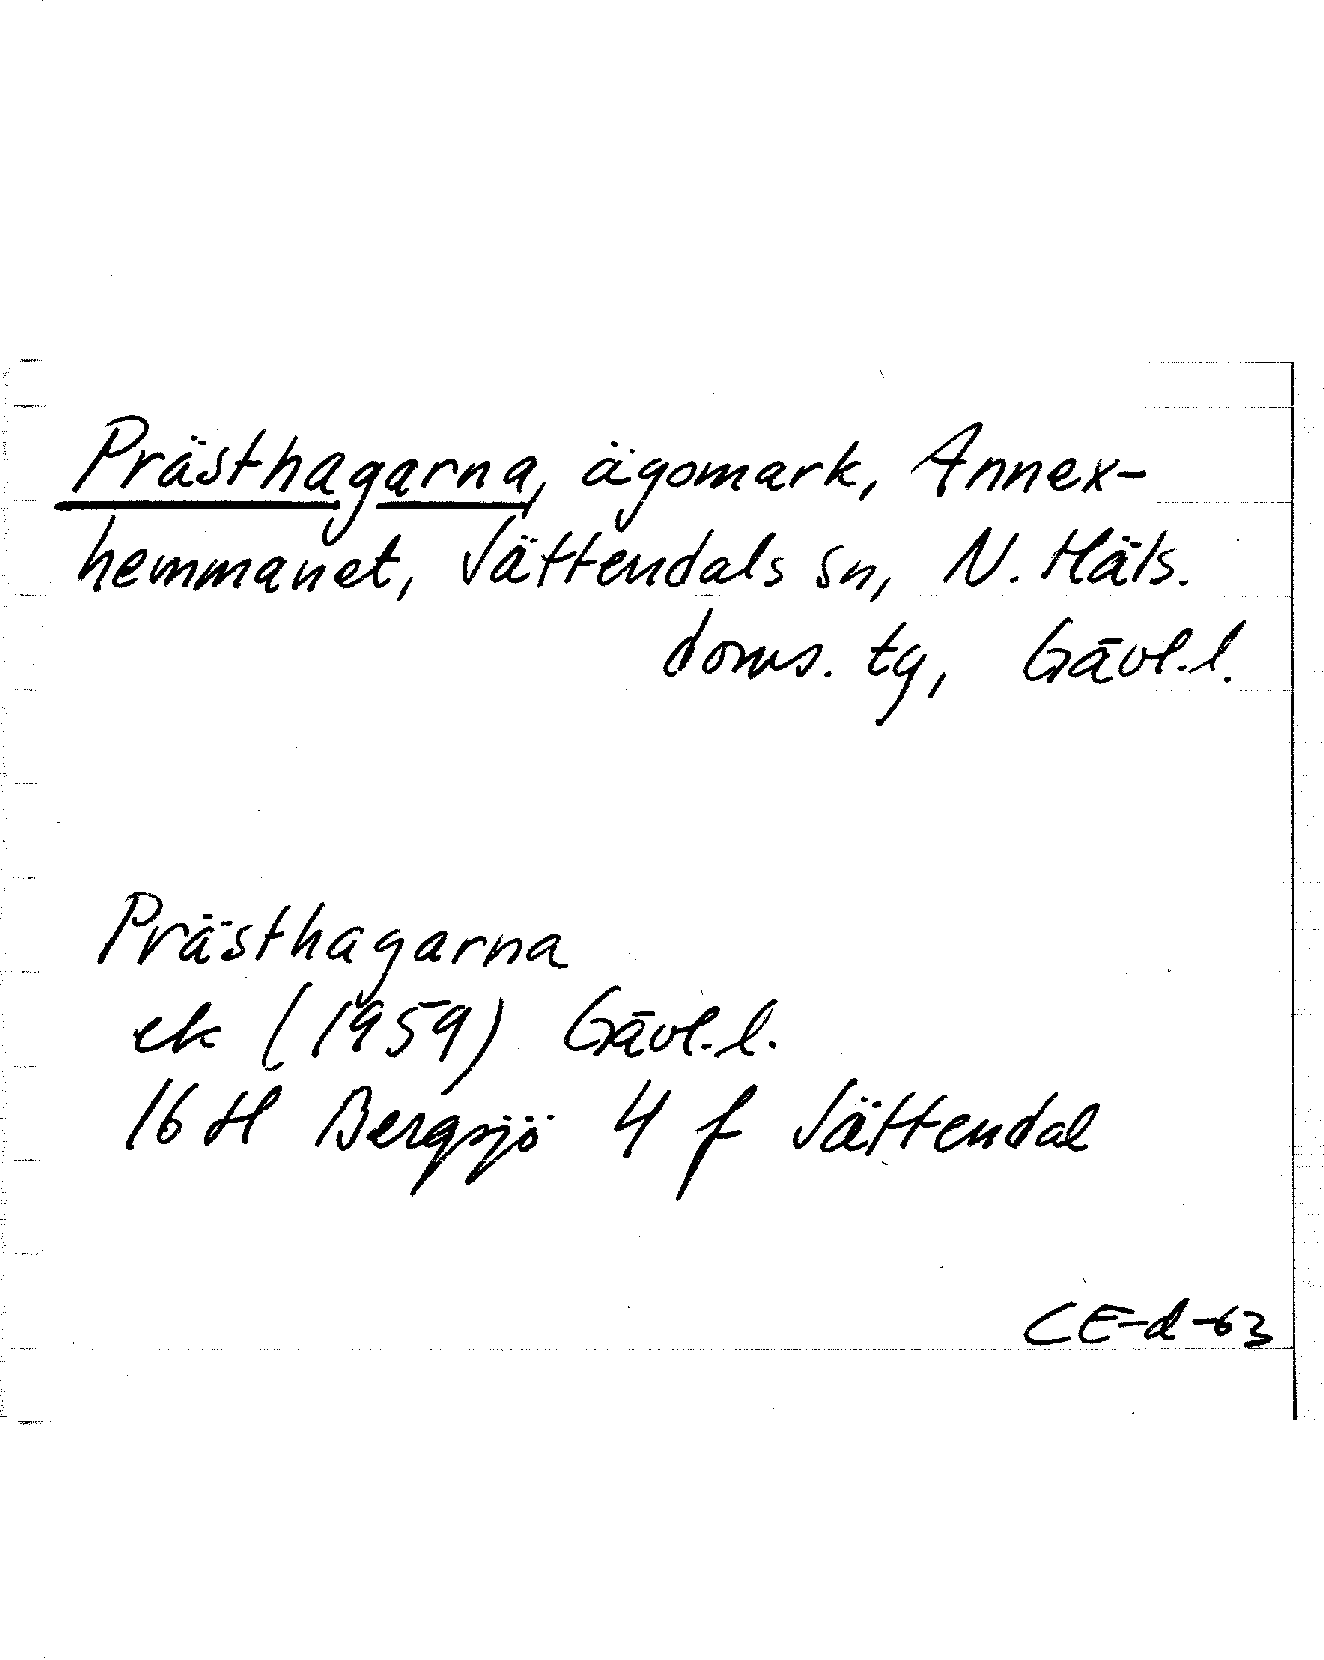 Prästhagarna, ägomark, Annex-
hemmanet, Jättendals sn, N. Häls.
doms. tg, Gävl.l.
Prästhagarna
ek (1959) Gävl.l.
16 H Bergsjö 4 f Jättendal
CE-d-63